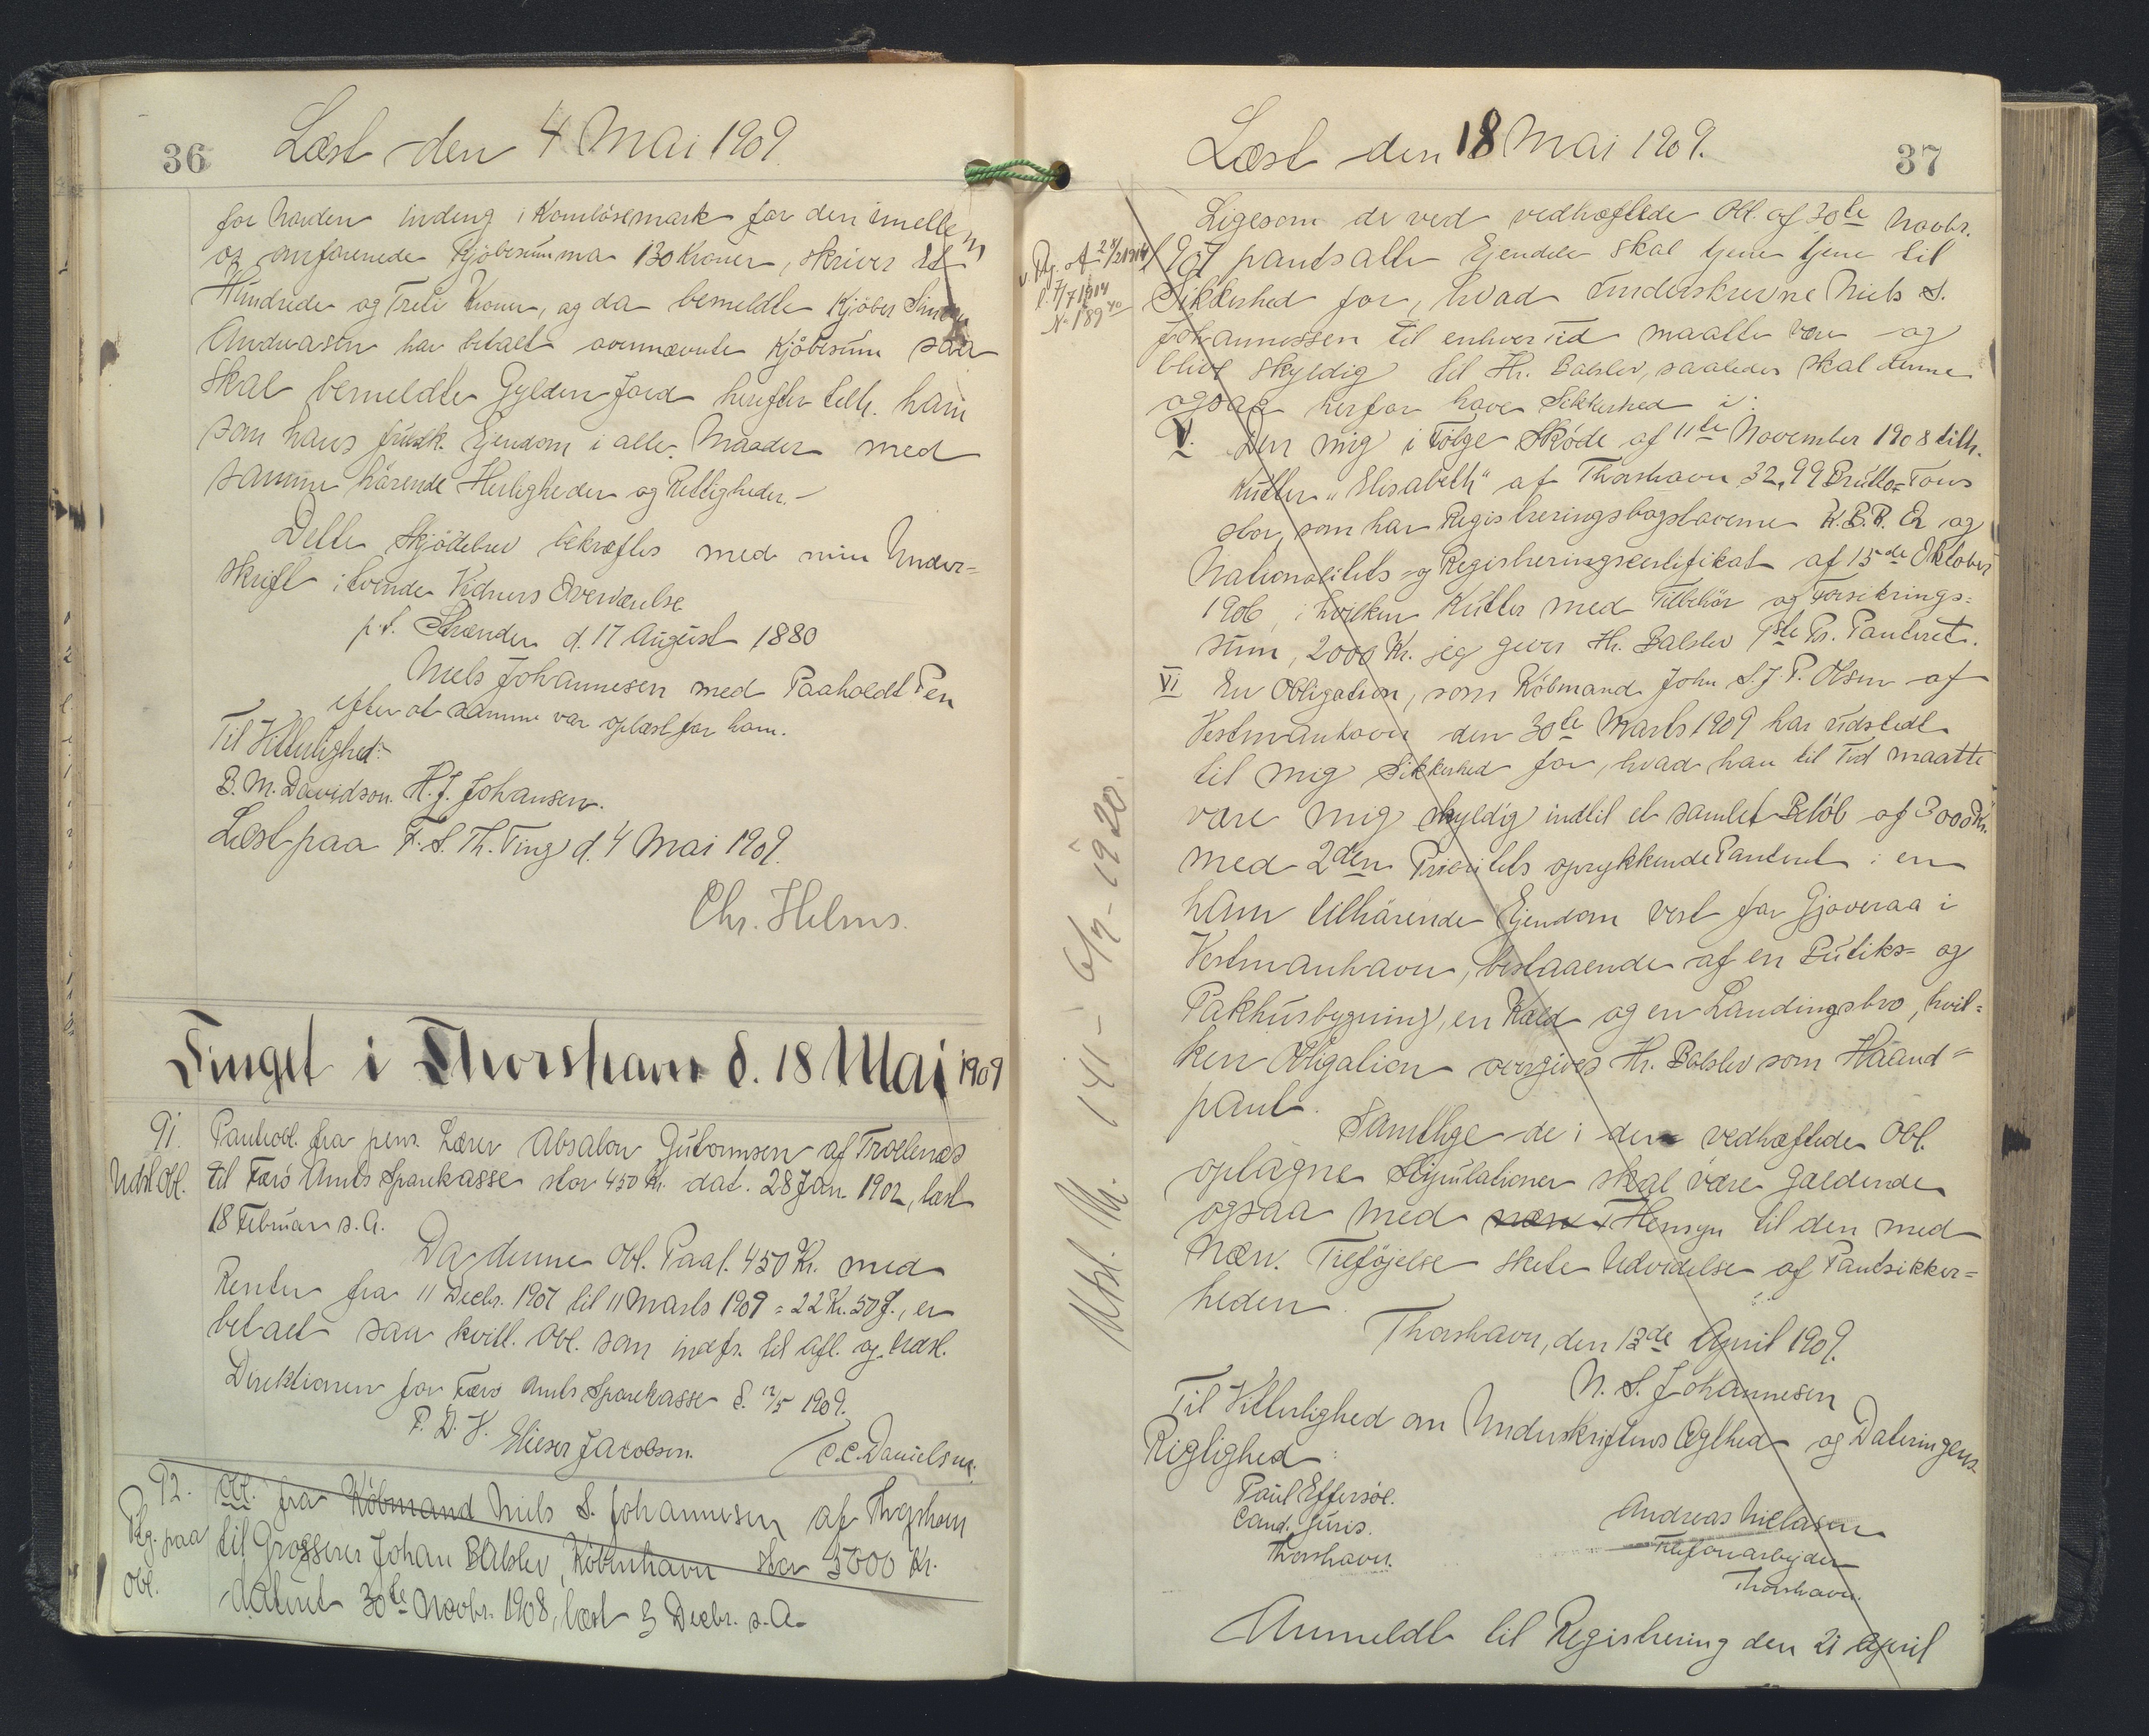 36
Læst den 4 Mai 1909.
for Norden Indeng i Komlösemark for den imellem
os omforenede Kjöbesumma 130 Kroner, skriver Et
Hundrede og Treti Kroner, og da bemeldte Kjöber Simon
Andreasen har betalt ovennævnte Kjöbesum saa
skal bemeldte Gylden Jord herefter tilh. ham
som hans Ejendom i alle Maader med
samme hörende Herligheder og Rettigheder.-
Dette Skjödebrev bekræftes med min Under=
skrift i tvende Vidners Overværelse
p.t. Strænder d. 17 August 1880
Niels Johannesen med Paaholdt Pen
efter at samme var oplæst for ham.
Til Vitterlighed:
B. M. Davidson. H. J. Johansen.
Læst paa F. S. Th. Ting d. 4 Mai 1909.
Chr. Helms.
Tinget i Thorshavn d. 18 Mai 1909
91.
Udsl. Obl.
Panteobl. fra pens. Lærer Absalon Guttormsen af Trollenæs
til Færö Amts Sparekasse stor 450 Kr. dat. 28 Jan. 1902, læst
18 Februar s. A.
Da denne Obl. Paal. 450 Kr. med
Renter fra 11 Decbr. 1907 til 11 Marts 1909 = 22 Kr. 50 Ø., er
betalt saa kvitt. Obl. som indfr. til Afl. og Udsl.
Direktionen for Færö Amts Sparekasse d. 12/5 1909.
P. D. V.
Elieser Jacobsen. C. C. Danielsen.
92.
Plg. paa
Obl.
Obl. fra Köbmand Niels S. Johannesen af Thorshavn
til Grosserer Johan Balslev, København stor 5000 Kr.
dateret 30te Novbr. 1908, læst 3 Decbr. s. A.
Læst den 18 Mai 1909.
37
Ligesom de ved vedhæftede Obl. af 30te Novbr.
1907 pantsatte Ejendele skal tjene tjene til
Sikkerhed for, hvad Underskrevne Niels S.
Johannessen til enhver Tid maatte være og
blive skyldig til Hr. Balslev, saaledes skal denne
ogsaa herfor have Sikkerhed i:
V. Den mig i Følge Sköde af 11te November 1908 tilh.
Kutter „Elisabeth" af Thorshavn 32,99 Brutto=Tons
stor, som har Registreringsbogstaverne og
Nationalitets- og Registreringscertifikat af 15de Oktober
1906, i hvilken Kutter med Tilbehör og Forsikrings=
sum, 2000 Kr. jeg giver Hr. Balslev 1ste Pr. Panteret.
VI En Obligation, som Köbmand John S. J. P. Olsen af
Vestmanhavn den 30te Marts 1909 har udstedt
til mig Sikkerhed for, hvad han til Tid maatte
være mig skyldig indtil et samlet Belöb af 3000 Kr.
med 2den Prioritets oprykkende Panteret i en
ham tilhörende Ejendom vest for Gjoveraa i
Vestmanhavn, bestaaende af en Butiks= og
Pakhusbygning, en Kæld og en Landingsbro, hvil=
ken Obligation overgives Hr. Balslev som Haand=
pant.
Samtlige de i den vedhæftede Obl.
optagne Stipulationer skal være Gældende
ogsaa med Hensyn til den med
nærv. Tilföjelse skete Udvidelse af Pantsikker=
heden.
Thorshavn, den 13de April 1909.
N. S. Johannesen
Til Vitterlighed om Underskriftens Ægthed og Dateringens
Rigtighed:
Paul Effersöe.
Cand. Juris.
Thorshavn.
Andreas Nielasen
Telefonarbejder
Thorshavn.
Anmeldt til Registrering den 21 April
1914
No 189
Udsl. 141 - 6/7 - 1920.